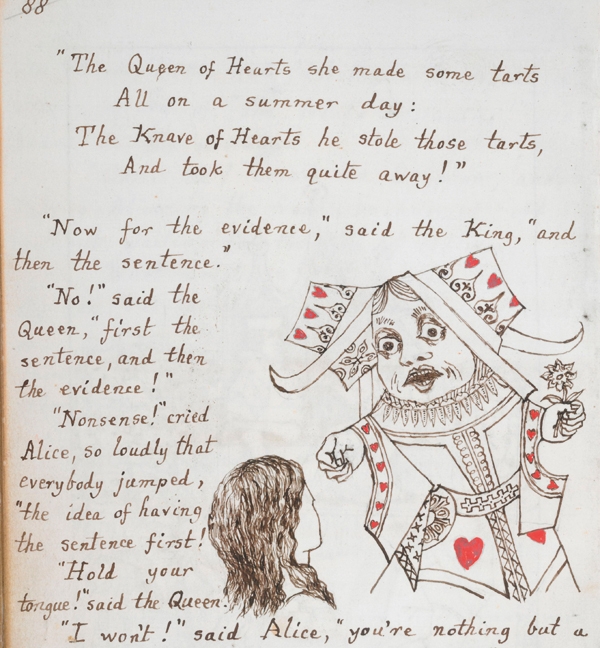 88
"The Queen of Hearts she made some tarts
All on a summer day:
The Knave of Hearts he stole those tarts,
And took them quite away!"
"Now for the evidence," said the King, "and
then the sentence."
"No!" said the
Queen, "first the
sentence, and then
the evidence!"
"Nonsense!" cried
Alice, so loudly that
everybody jumped,
"the idea of having
the sentence first!
"Hold your
tongue!" said the Queen.
"I won't!" said Alice, "you're nothing but a